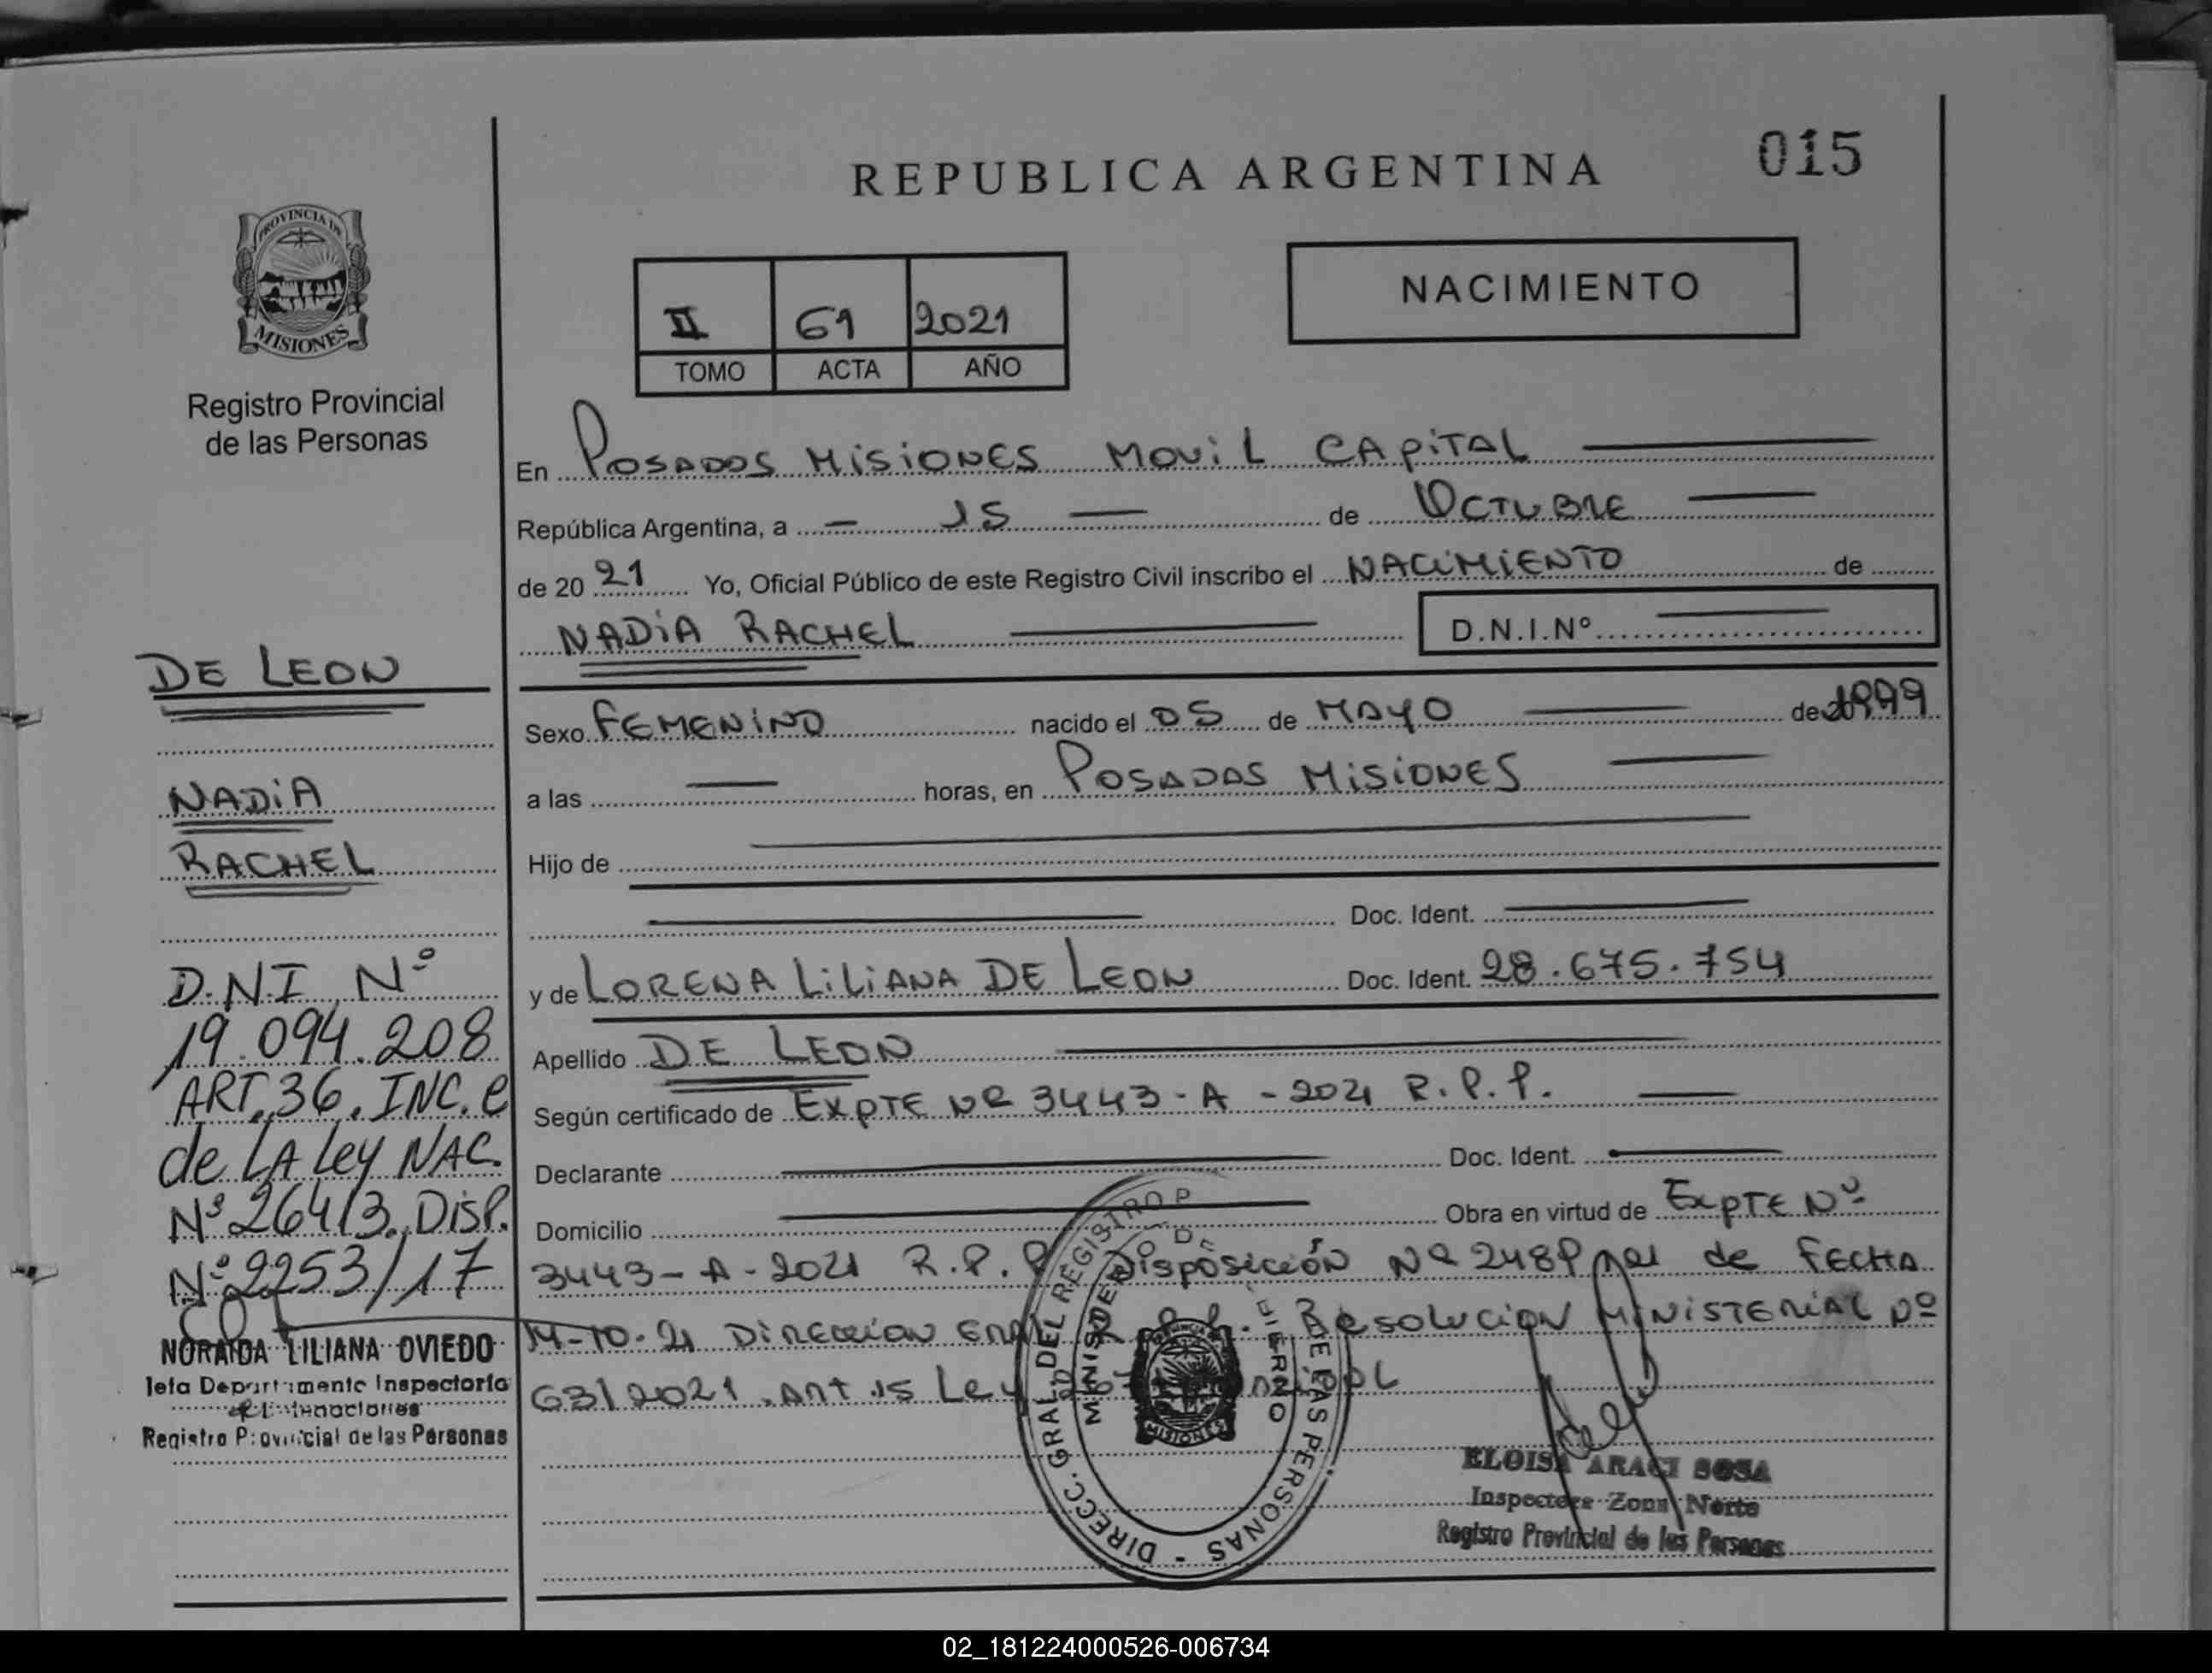 REPUBLICA ARGENTINA
015
PROVINCIA DE
MISIONES
Registro Provincial
de las Personas
II 61 2021
TOMO ACTA AÑO
NACIMIENTO
En POSADAS MISIONES MOVIL CAPITAL
República Argentina, a 15 de OCTUBRE
de 2021 Yo, Oficial Público de este Registro Civil inscribo el NACIMIENTO de
NADIA RACHEL D.N.I.Nº
Sexo FEMENINO nacido el 05 de MAYO de 1999
a las horas, en POSADAS MISIONES
Hijo de
Doc. Ident.
y de LORENA LILIANA DE LEON Doc. Ident. 28.675.754
Apellido DE LEON
Según certificado de EXPTE Nº 3443-A-2021 R.P.P.
Declarante Doc. Ident.
Domicilio Obra en virtud de EXPTE Nº
3443-A-2021 R.P.P Disposición Nº de FECHA
14-10-21 DIRECCION GRAL RESOLUCION MINISTERIAL Nº
63/2021 ART 15 Ley
DE LEON
NADIA
RACHEL
D.N.I Nº
19.094.208
ART. 36. INC. e
de LA Ley NAC.
Nº 26413. DISP.
Nº 2253/17
NORAIDA LILIANA OVIEDO
Jefa Departamento Inspectoría
Registro Provincial de las Personas
DIRECC. GRAL. DEL REGISTRO P DE LAS PERSONAS
MINISTERIO DE
MISIONES
ELOISA ARACI SOSA
Inspectora Zona Norte
Registro Provincial de las Personas
02_181224000526-006734